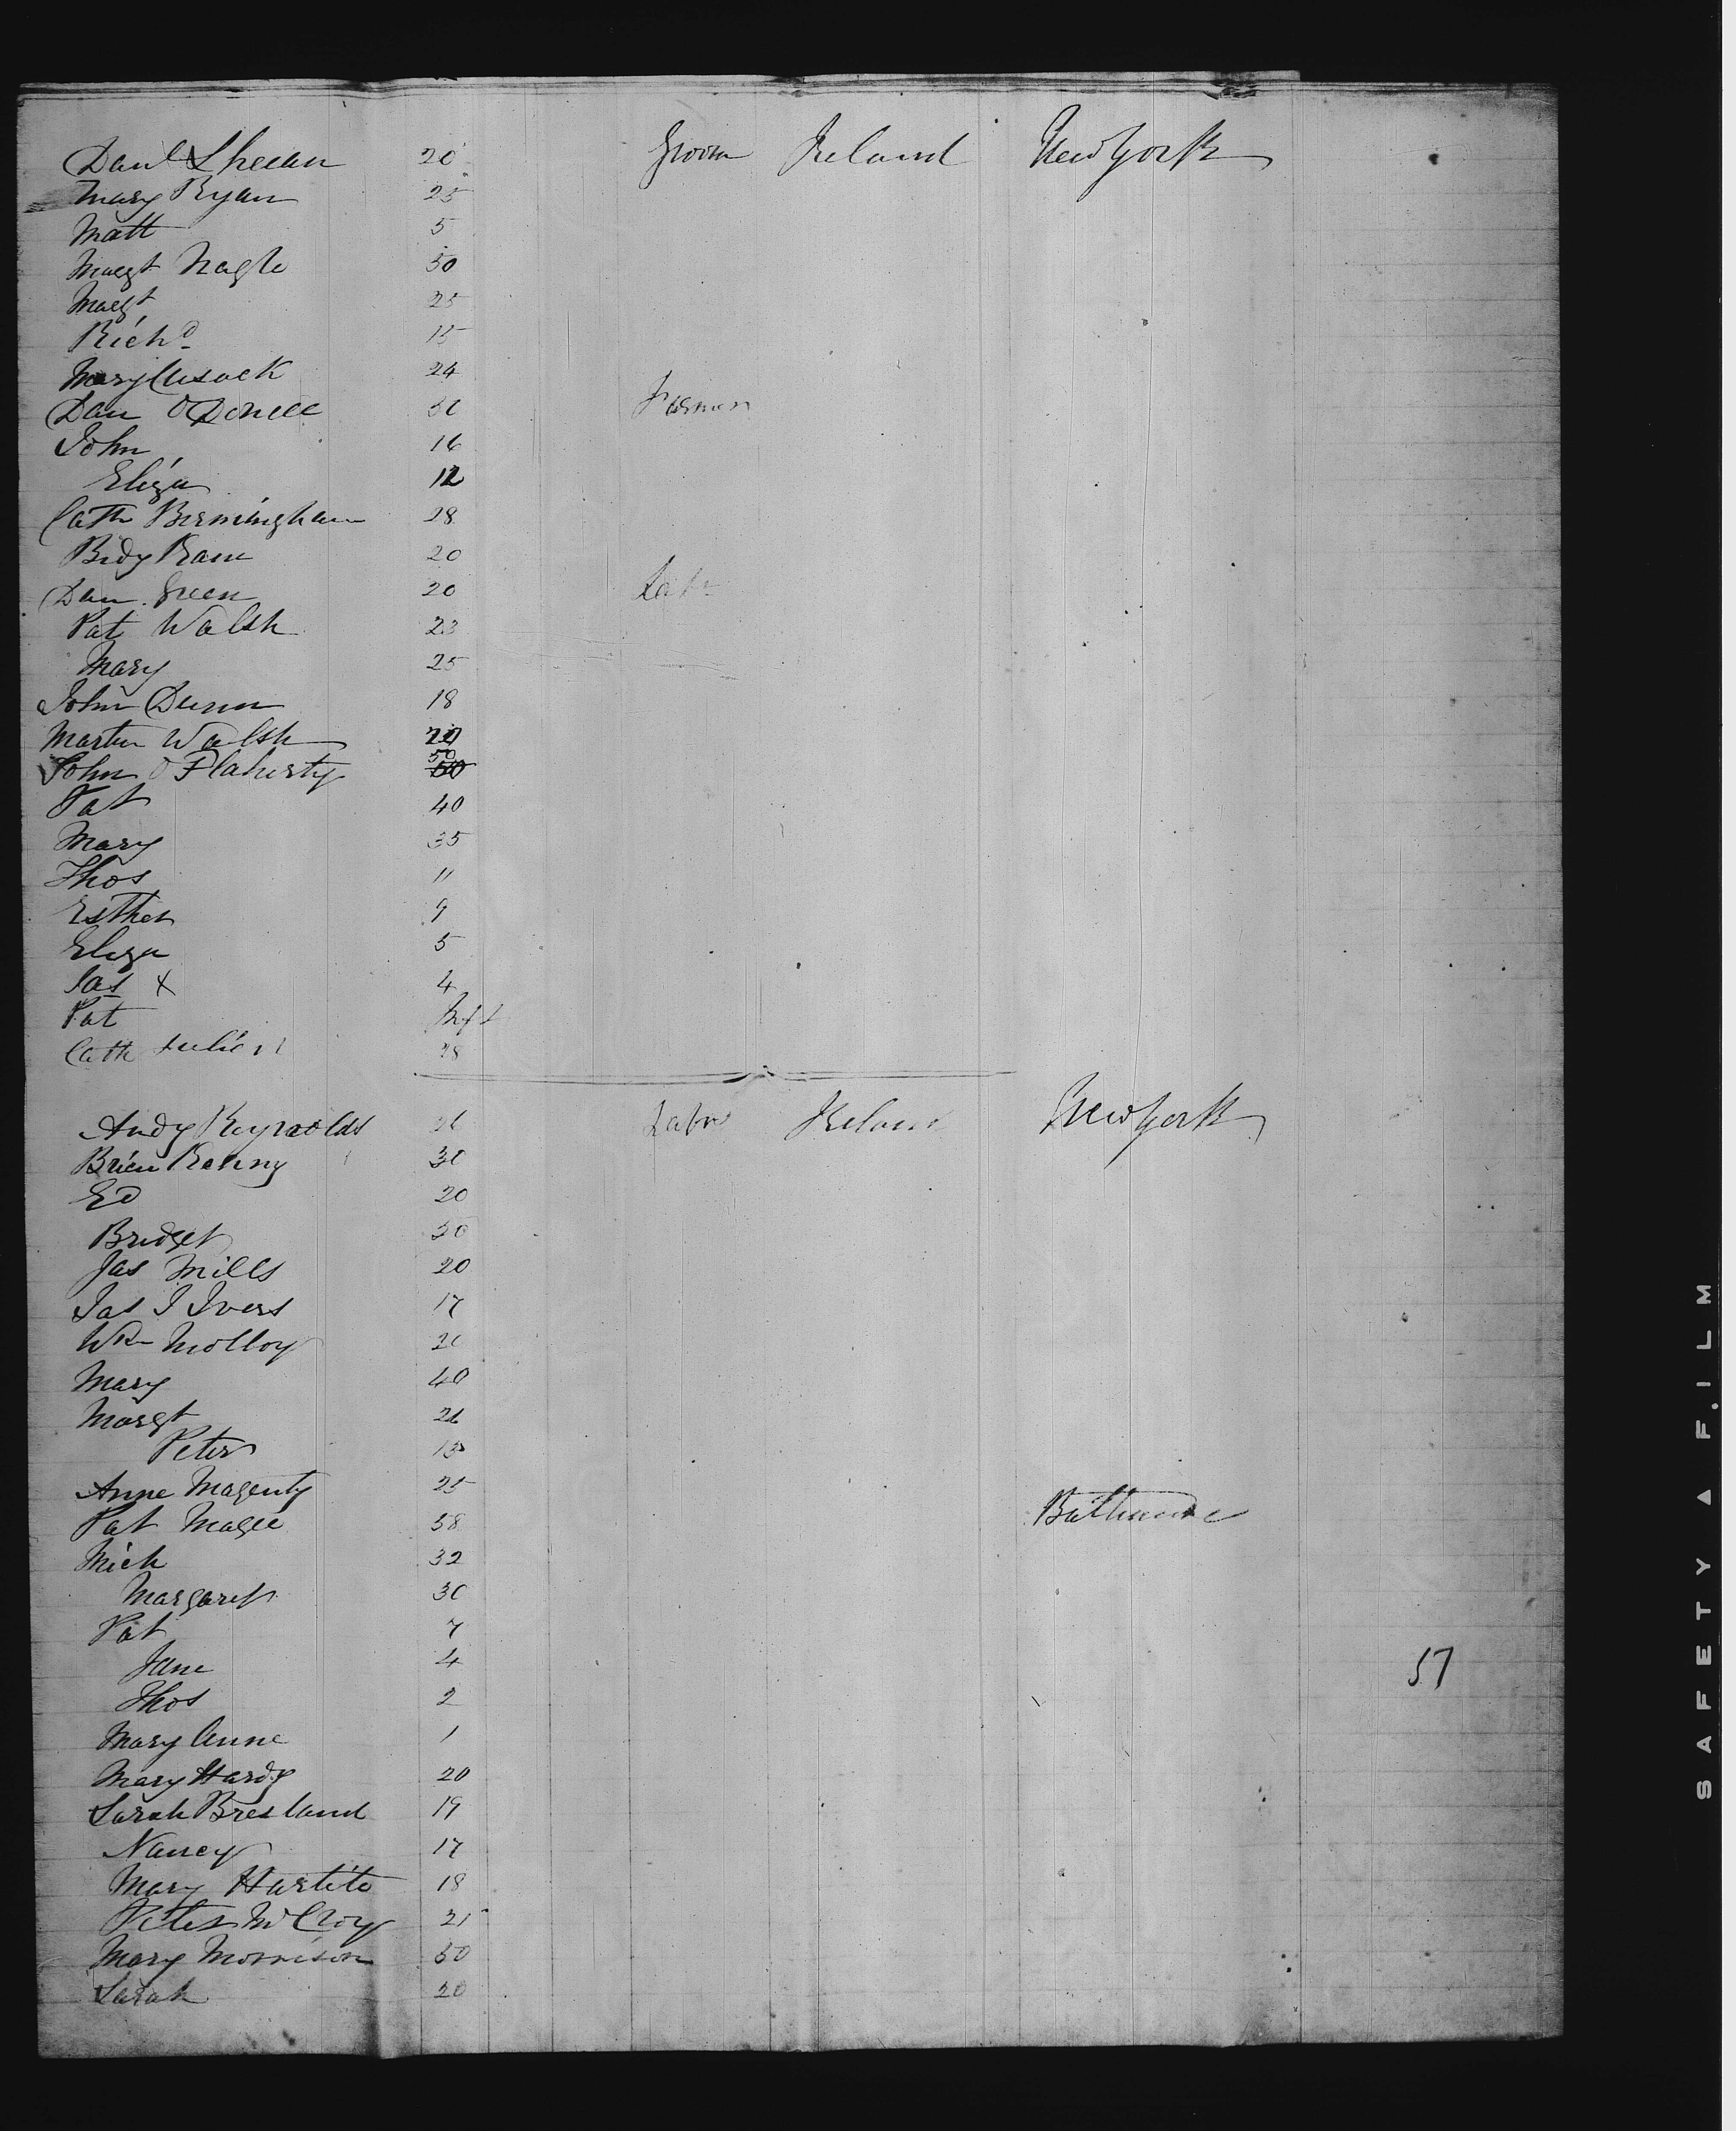 Danl Shean 20 Groom Ireland New York
Mary Ryan 25
Matt 5
Margt Nagle 50
Margt 25
Richd 15
Mary Cusack 24
Dan O Donell 30 Farmer
John 16
Eliza 12
Cath Birmingham 28
Bidy Kane 20
Dan Green 20 Labr
Pat Walsh 23
Mary 25
John Dunn 18
Martin Walsh 20
John O Flaherty 50
Pat 40
Mary 35
Thos 11
Esther 9
Eliza 5
Jas x 4
Pat Inft
Cath 28
Andy Reynolds 26 Labr Ireland New York
Brien Kenny 30
Ed 20
Bridget 50
Jas Mills 20
Jas J Ivers 17
Wm Molloy 20
Mary 40
Margt 21
Peter 13
Anne Magenty 25
Pat Magee 58 Baltimore
Mich 32
Margaret 30
Pat 7
Jane 4
Thos 2
Mary Anne 1
Mary Hardy 20
Sarah Bresland 19
Nancy 17
Mary 18
Peter McCroy 21
Mary Morrison 50
Sarah 20
57
SAFETY ▲ FILM